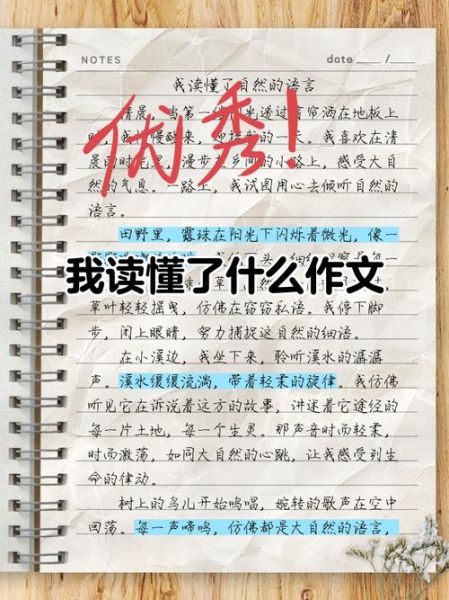 NOTES
date ___ / ___
我读懂了自然的语言
优秀!
清晨,当第一缕阳光透过窗帘洒在地板上
我喜欢在清
漫步在乡间的小路上,感受大自
然的气息。一路上,我试图用心去倾听自然的
语言。
田野里,露珠在阳光下闪烁着微光,像一
我读懂了什么作文
草叶轻轻摇曳,仿佛在窃窃私语。我停下脚
步,闭上眼睛,努力捕捉这自然的细语。
在小溪边,我坐下来,聆听溪水的潺潺
声。溪水缓缓流淌,带着轻柔的旋律。我仿佛
听见它在诉说着这方的故事,讲述着它途经的
每一片土地,每一个生灵。那声音时而轻柔,
时而激荡,如同大自然的心跳,让我感受到生
命的律动。
树上的鸟儿开始鸣唱,婉转的歌声在空中
回荡。每一声啼鸣,仿佛都是大自然的语言,